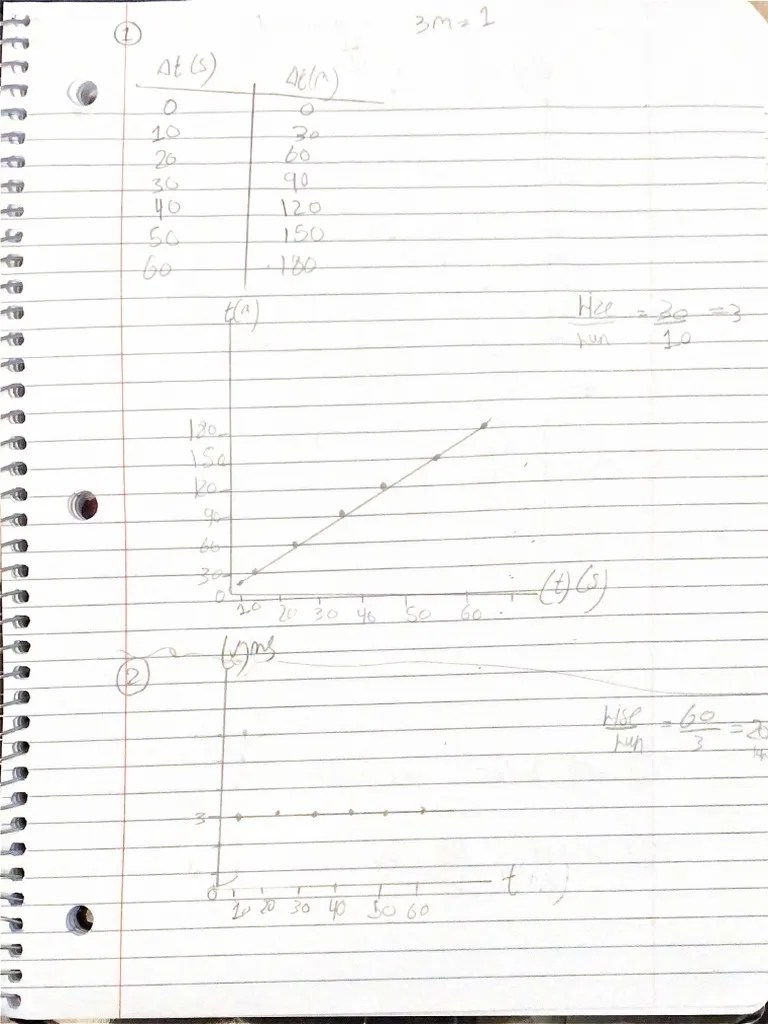 3m = 1
1
Δt (s) Δt (m)
0 0
10 30
20 60
30 90
40 120
50 150
60 180
t(m)
= 30/10 = 3
180
150
120
90
60
30
0
10 20 30 40 50 60
(t) (s)
2
(v) m/s
= 60/3 = 20
3
0
t
10 20 30 40 50 60